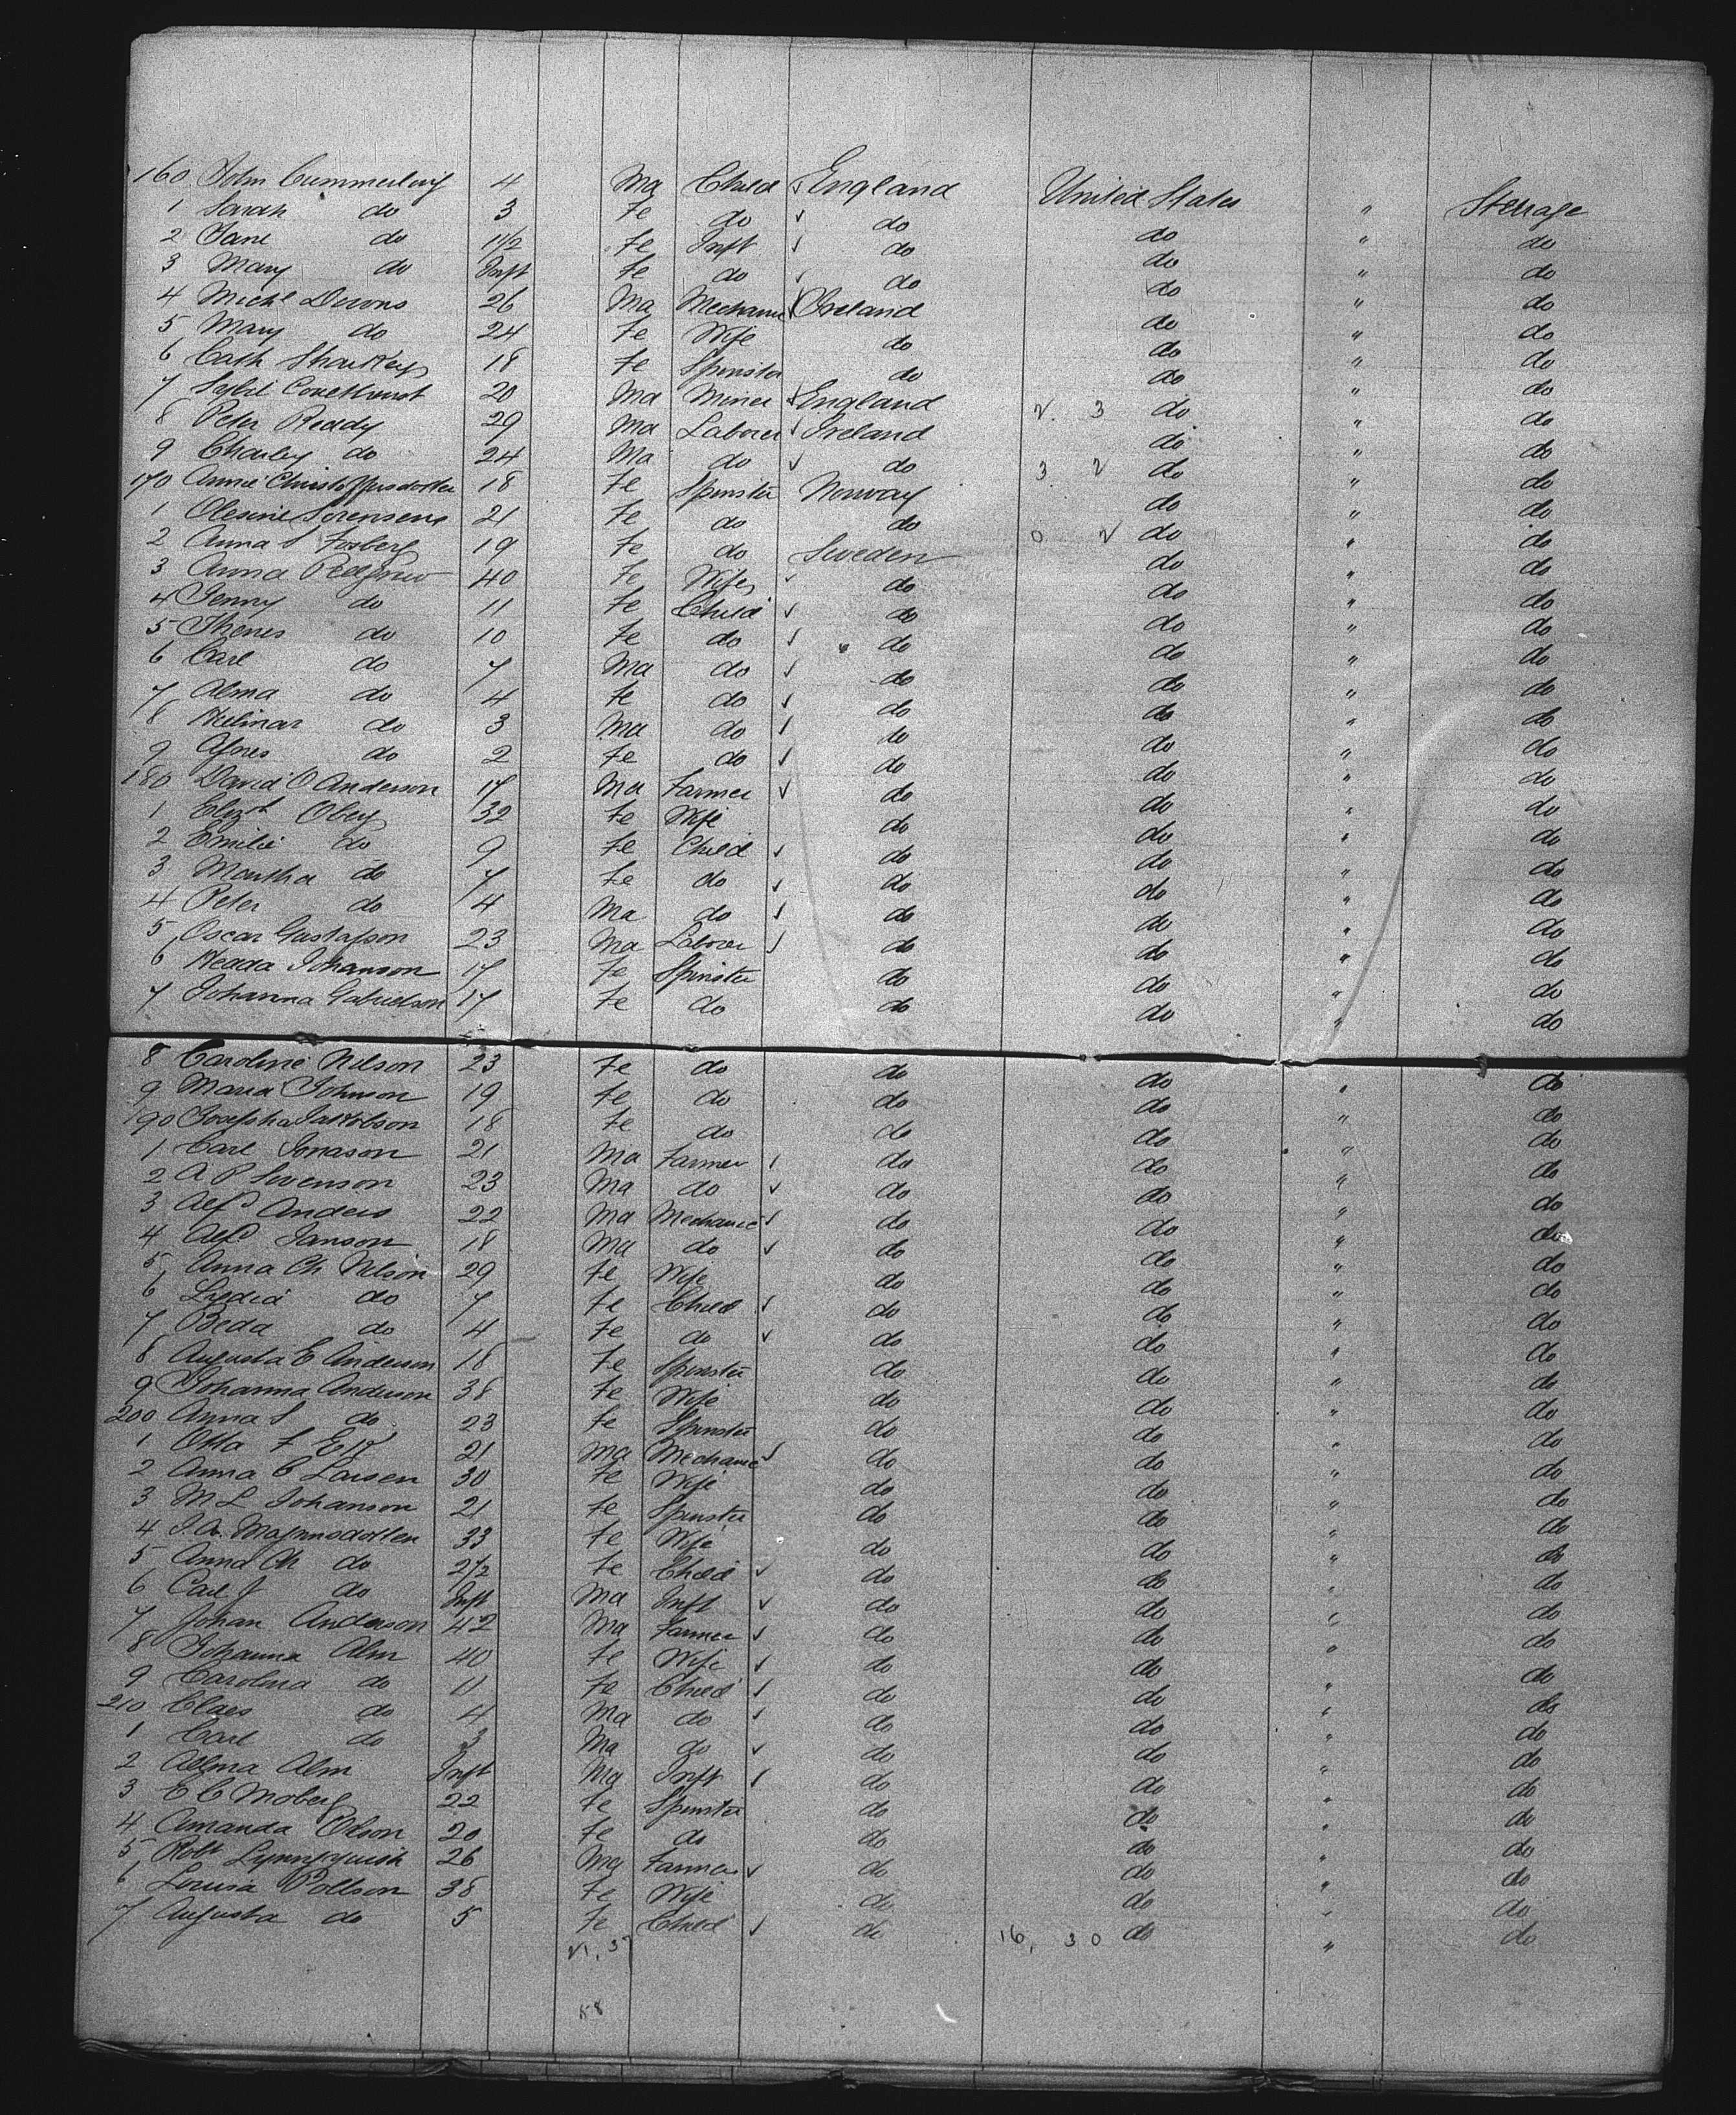 160 John Cummerling 4 Ma Child England United States " Steerage
1 Sarah do 3 Fe do do do " do
2 Jane do 1 1/2 Fe Inft do do " do
3 Mary do Inft Fe do do do " do
4 Michl Downs 26 Ma Mechanic Ireland do " do
5 Mary do 24 Fe Wife do do " do
6 Cath Sharkey 18 Fe Spinster do do " do
7 20 Ma Miner England do " do
8 Peter Reddy 29 Ma Laborer Ireland do " do
9 Charley do 24 Ma do do do " do
170 Annie 18 Fe Spinster Norway do " do
1 Olesine Sorensens 21 Fe do do do " do
2 Anna S Fosberg 19 Fe do Sweden do " do
3 Anna 40 Fe Wife do do " do
4 Jenny do 11 Fe Child do do " do
5 Thenes do 10 Fe do do do " do
6 Carl do 7 Ma do do do " do
7 Alma do 4 Fe do do do " do
8 do 3 Ma do do do " do
9 Agnes do 2 Fe do do do " do
180 David O Anderson 17 Ma Farmer do do " do
1 Elizth Oberg 32 Fe Wife do do " do
2 Emilie do 9 Fe Child do do " do
3 Martha do 7 Fe do do do " do
4 Peter do 4 Ma do do do " do
5 Oscar Gustafson 23 Ma Laborer do do " do
6 Hedda Johanson 17 Fe Spinster do do " do
7 Johanna Gabrielson 17 Fe do do do " do
8 Caroline Nilson 23 Fe do do do " do
9 Maria Johnson 19 Fe do do do " do
190 Josefsha Jakobson 18 Fe do do do " do
1 Carl Jonason 21 Ma Farmer do do " do
2 A P Svenson 23 Ma do do do " do
3 Alfd Anders 22 Ma Mechanic do do " do
4 Alfd Janson 18 Ma do do do " do
5 Anna Ch Nilson 29 Fe Wife do do " do
6 Lydia do 7 Fe Child do do " do
7 Beda do 4 Fe do do do " do
8 Augusta E Anderson 18 Fe Spinster do do " do
9 Johanna Anderson 38 Fe Wife do do " do
200 Anna S do 23 Fe Spinster do do " do
1 Otta F Ek 21 Ma Mechanic do do " do
2 Anna C Larsen 30 Fe Wife do do " do
3 M L Johanson 21 Fe Spinster do do " do
4 J. A. Magnusdotter 33 Fe Wife do do " do
5 Anna Ch do 2 1/2 Fe Child do do " do
6 Carl J do Inft Ma Inft do do " do
7 Johan Anderson 42 Ma Farmer do do " do
8 Johanna Alm 40 Fe Wife do do " do
9 Carolina do 11 Fe Child do do " do
210 Claes do 4 Ma do do do " do
1 Carl do 3 Ma do do do " do
2 Allma Alm Inft Ma Inft do do " do
3 E C Moberg 22 Fe Spinster do do " do
4 Amanda Olson 20 Fe do do do " do
5 Robt 26 Ma Farmer do do " do
6 Louisa Pollson 38 Fe Wife do do " do
7 Augusta do 5 Fe Child do 16, 30 do " do
58